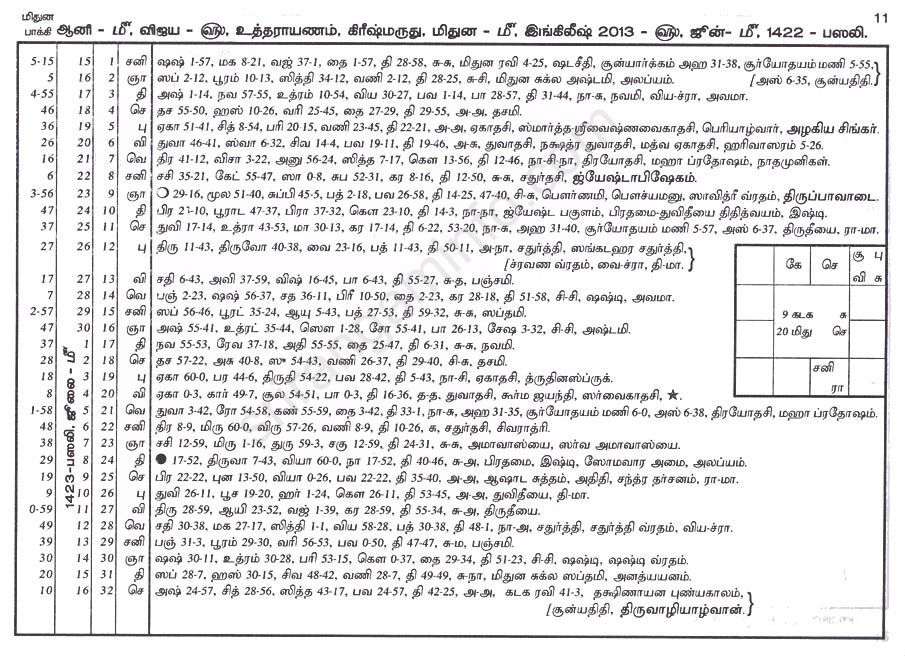 மிதுன
பாக்கி
ஆனி - மீ, விஜய - ௵, உத்தராயணம், கிரீஷ்மருது, மிதுன - மீ, இங்கிலீஷ் 2013 - ௵, ஜூன்- மீ, 1422 - பஸலி.
11
5-15 15 1 சனி ஷஷ் 1-57, மக 8-21, வஜ் 37-1, தை 1-57, தி 28-58, சு-சு, மிதுன ரவி 4-25, ஷடசீதி, சூன்யார்க்கம் அஹ 31-38, சூர்யோதயம் மணி 5-55,
5 16 2 ஞா ஸப் 2-12, பூரம் 10-13, ஸித்தி 34-12, வணி 2-12, தி 28-25, சு-சி, மிதுன சுக்ல அஷ்டமி, அலப்யம். [அஸ் 6-35, சூன்யதிதி.]
4-55 17 3 தி அஷ் 1-14, நவ 57-55, உத்ரம் 10-54, விய 30-27, பவ 1-14, பா 28-57, தி 31-44, நா-சு, நவமி, விய-ச்ரா, அவமா.
46 18 4 செ தச 55-50, ஹஸ் 10-26, வரி 25-45, தை 27-29, தி 29-55, அ-அ, தசமி.
36 19 5 பு ஏகா 51-41, சித் 8-54, பரி 20-15, வணி 23-45, தி 22-21, அ-அ, ஏகாதசி, ஸ்மார்த்த-ஸ்ரீவைஷ்ணவைகாதசி, பெரியாழ்வார், அழகிய சிங்கர்.
26 20 6 வி துவா 46-41, ஸ்வா 6-32, சிவ 14-4, பவ 19-11, தி 19-46, அ-சு, துவாதசி, நக்ஷத்ர துவாதசி, மத்வ ஏகாதசி, ஹரிவாஸரம் 5-26.
16 21 7 வெ திர 41-12, விசா 3-22, அனு 56-24, ஸித்த 7-17, கௌ 13-56, தி 12-46, நா-சி-நா, திரயோதசி, மஹா ப்ரதோஷம், நாதமுனிகள்.
6 22 8 சனி சசி 35-21, கேட் 55-47, ஸா 0-8, சுப 52-31, கர 8-16, தி 12-50, சு-சு, சதுர்தசி, ஜ்யேஷ்டாபிஷேகம்.
3-56 23 9 ஞா ❍ 29-16, மூல 51-40, சுப்பி 45-5, பத் 2-18, பவ 26-58, தி 14-25, 47-40, சி-சு, பௌர்ணமி, பௌச்யமனு, ஸாவித்ரீ வ்ரதம், திருப்பாவாடை.
47 24 10 தி பிர 23-10, பூராட 47-37, பிரா 37-32, கௌ 23-10, தி 14-3, நா-நா, ஜ்யேஷ்ட பகுளம், பிரதமை-துவிதீயை திதித்வயம், இஷ்டி.
37 25 11 செ துவி 17-14, உத்ரா 43-53, மா 30-13, கர 17-14, தி 6-22, 53-20, நா-சு, அஹ 31-40, சூர்யோதயம் மணி 5-57, அஸ் 6-37, திருதீயை, ரா-மா.
27 26 12 பு திரு 11-43, திருவோ 40-38, வை 23-16, பத் 11-43, தி 50-11, அ-நா, சதுர்த்தி, ஸங்கடஹர சதுர்த்தி,
[ச்ரவண வ்ரதம், வை-ச்ரா, தி-மா.
17 27 13 வி சதி 6-43, அவி 37-59, விஷ் 16-45, பா 6-43, தி 55-27, சு-த, பஞ்சமி.
7 28 14 வெ பஞ் 2-23, ஷஷ் 56-37, சத 36-11, பிரீ 10-50, தை 2-23, கர 28-18, தி 51-58, சி-சி, ஷஷ்டி, அவமா.
2-57 29 15 சனி ஸப் 56-46, பூரட் 35-24, ஆயு 5-43, பத் 27-53, தி 59-32, சு-சு, ஸப்தமி.
47 30 16 ஞா அஷ் 55-41, உத்ரட் 35-44, ஸௌ 1-28, சோ 55-41, பா 26-13, சேஷ 3-32, சி-சி, அஷ்டமி.
37 1 17 தி நவ 55-53, ரேவ 37-18, அதி 55-55, தை 25-47, தி 6-31, சு-சு, நவமி.
28 2 18 செ தச 57-22, அசு 40-8, ஸு 54-43, வணி 26-37, தி 29-40, சி-சு, தசமி.
18 3 19 பு ஏகா 60-0, பர 44-6, திருதி 54-22, பவ 28-42, தி 5-43, நா-சி, ஏகாதசி, த்ருதினஸ்ப்ருக்.
8 4 20 வி ஏகா 0-3, கார் 49-7, சூல 54-51, பா 0-3, தி 16-36, த-த, துவாதசி, கூர்ம ஜயந்தி, ஸர்வைகாதசி, ★.
1-58 5 21 வெ துவா 3-42, ரோ 54-58, கண் 55-59, தை 3-42, தி 33-1, நா-சு, அஹ 31-35, சூர்யோதயம் மணி 6-0, அஸ் 6-38, திரயோதசி, மஹா ப்ரதோஷம்.
48 6 22 சனி திர 8-9, மிரு 60-0, விரு 57-26, வணி 8-9, தி 10-26, சு, சதுர்தசி, சிவராத்ரி.
38 7 23 ஞா சசி 12-59, மிரு 1-16, துரு 59-3, சகு 12-59, தி 24-31, சு-சு, அமாவாஸ்யை, ஸர்வ அமாவாஸ்யை.
29 8 24 தி ● 17-52, திருவா 7-43, வியா 60-0, நா 17-52, தி 40-46, சு-அ, பிரதமை, இஷ்டி, ஸோமவார அமை, அலப்யம்.
19 9 25 செ பிர 22-22, புன 13-50, வியா 0-26, பவ 22-22, தி 35-40, அ-அ, ஆஷாட சுத்தம், அதிதி, சந்த்ர தர்சனம், ரா-மா.
9 10 26 பு துவி 26-11, பூச 19-20, ஹர் 1-24, கௌ 26-11, தி 53-45, அ-அ, துவிதீயை, தி-மா.
0-59 11 27 வி திரு 28-59, ஆயி 23-52, வஜ் 1-39, கர 28-59, தி 55-34, சு-அ, திருதீயை.
49 12 28 வெ சதி 30-38, மக 27-17, ஸித்தி 1-1, விய 58-28, பத் 30-38, தி 48-1, நா-அ, சதுர்த்தி, சதுர்த்தி வ்ரதம், விய-ச்ரா.
39 13 29 சனி பஞ் 31-3, பூரம் 29-30, வரி 56-53, பவ 0-50, தி 47-47, சு-ம, பஞ்சமி.
30 14 30 ஞா ஷஷ் 30-11, உத்ரம் 30-28, பரி 53-15, கௌ 0-37, தை 29-34, தி 51-23, சி-சி, ஷஷ்டி, ஷஷ்டி வ்ரதம்.
20 15 31 தி ஸப் 28-7, ஹஸ் 30-15, சிவ 48-42, வணி 28-7, தி 49-49, சு-நா, மிதுன சுக்ல ஸப்தமி, அனத்யயனம்.
10 16 32 செ அஷ் 24-57, சித் 28-56, ஸித்த 43-17, பவ 24-57, தி 42-25, அ-அ, கடக ரவி 41-3, தக்ஷிணாயன புண்யகாலம்,
[சூன்யதிதி, திருவாழியாழ்வான்.
1423-பஸலி, ஜூலை - மீ
கே செ சூ பு
வி சு
9 கடக சு
20 மிது செ
சனி
ரா